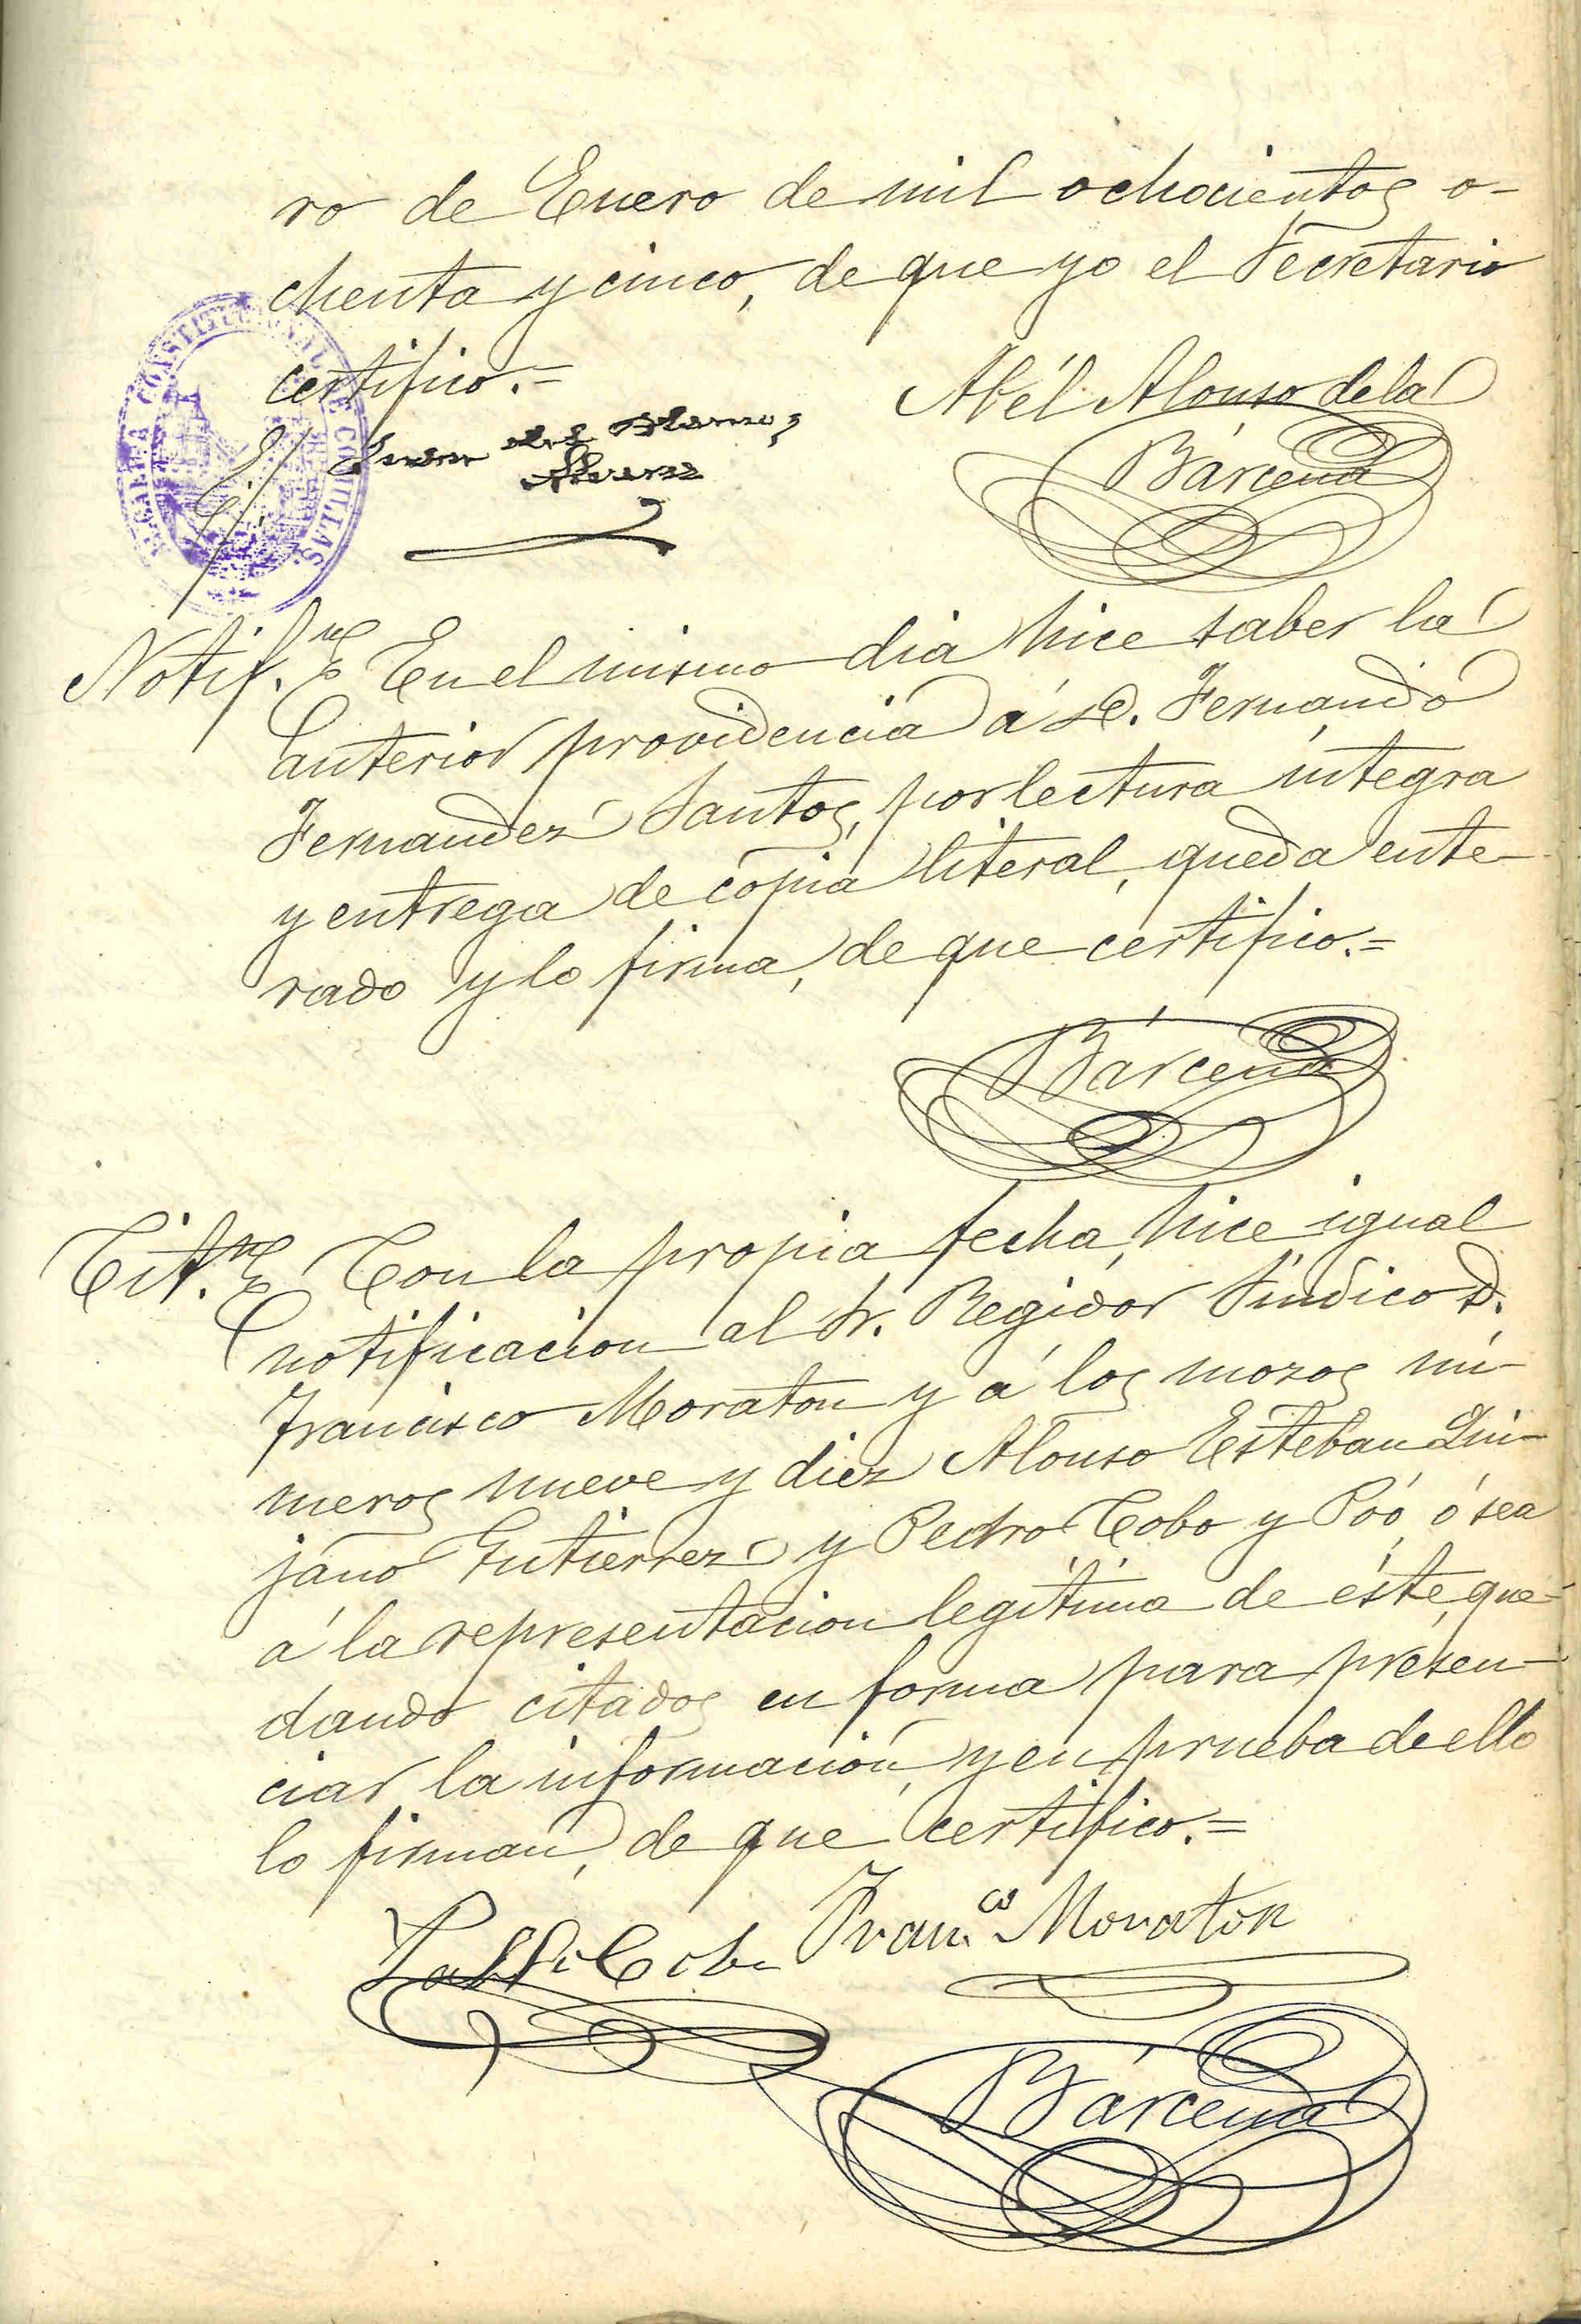 ro de Enero de mil ochocientos o-
chenta y cinco, de que yo el Secretario
certifico.=
ALCALDIA CONSTITUCIONAL DE COMILLAS
Abél Alonso de la
Bárcena
Notif.ⁿ En el mismo dia hice saber la
anterior providencia á D. Fernando
Fernandez Santos, por lectura íntegra
y entrega de copia literal, queda ente-
rado y lo firma, de que certifico.=
Bárcena
Cit.ⁿ Con la propia fecha, hice igual
notificacion al Sr. Regidor Síndico D.
Francisco Moraton y á los mozos nú-
meros nueve y diez Alonso Esteban Qui-
jano Gutierrez y Pedro Cobo y Póo, ó sea
á la representacion legítima de éste, que-
dando citados en forma para presen-
ciar la informacion, y en prueba de ello
lo firman, de que certifico.=
Pablo Cobo Fran.co Moraton
Bárcena